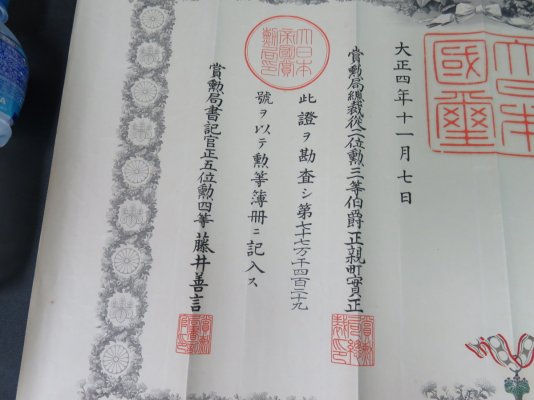 大日本
國璽
大正四年十一月七日
賞勳局總裁從二位勳三等伯爵正親町實正
大日本
帝國賞
勳局印
此證ヲ勘査シ第七十七万千四百二十九
號ヲ以テ勳等簿冊ニ記入ス
賞勳局書記官正五位勳四等藤井善言